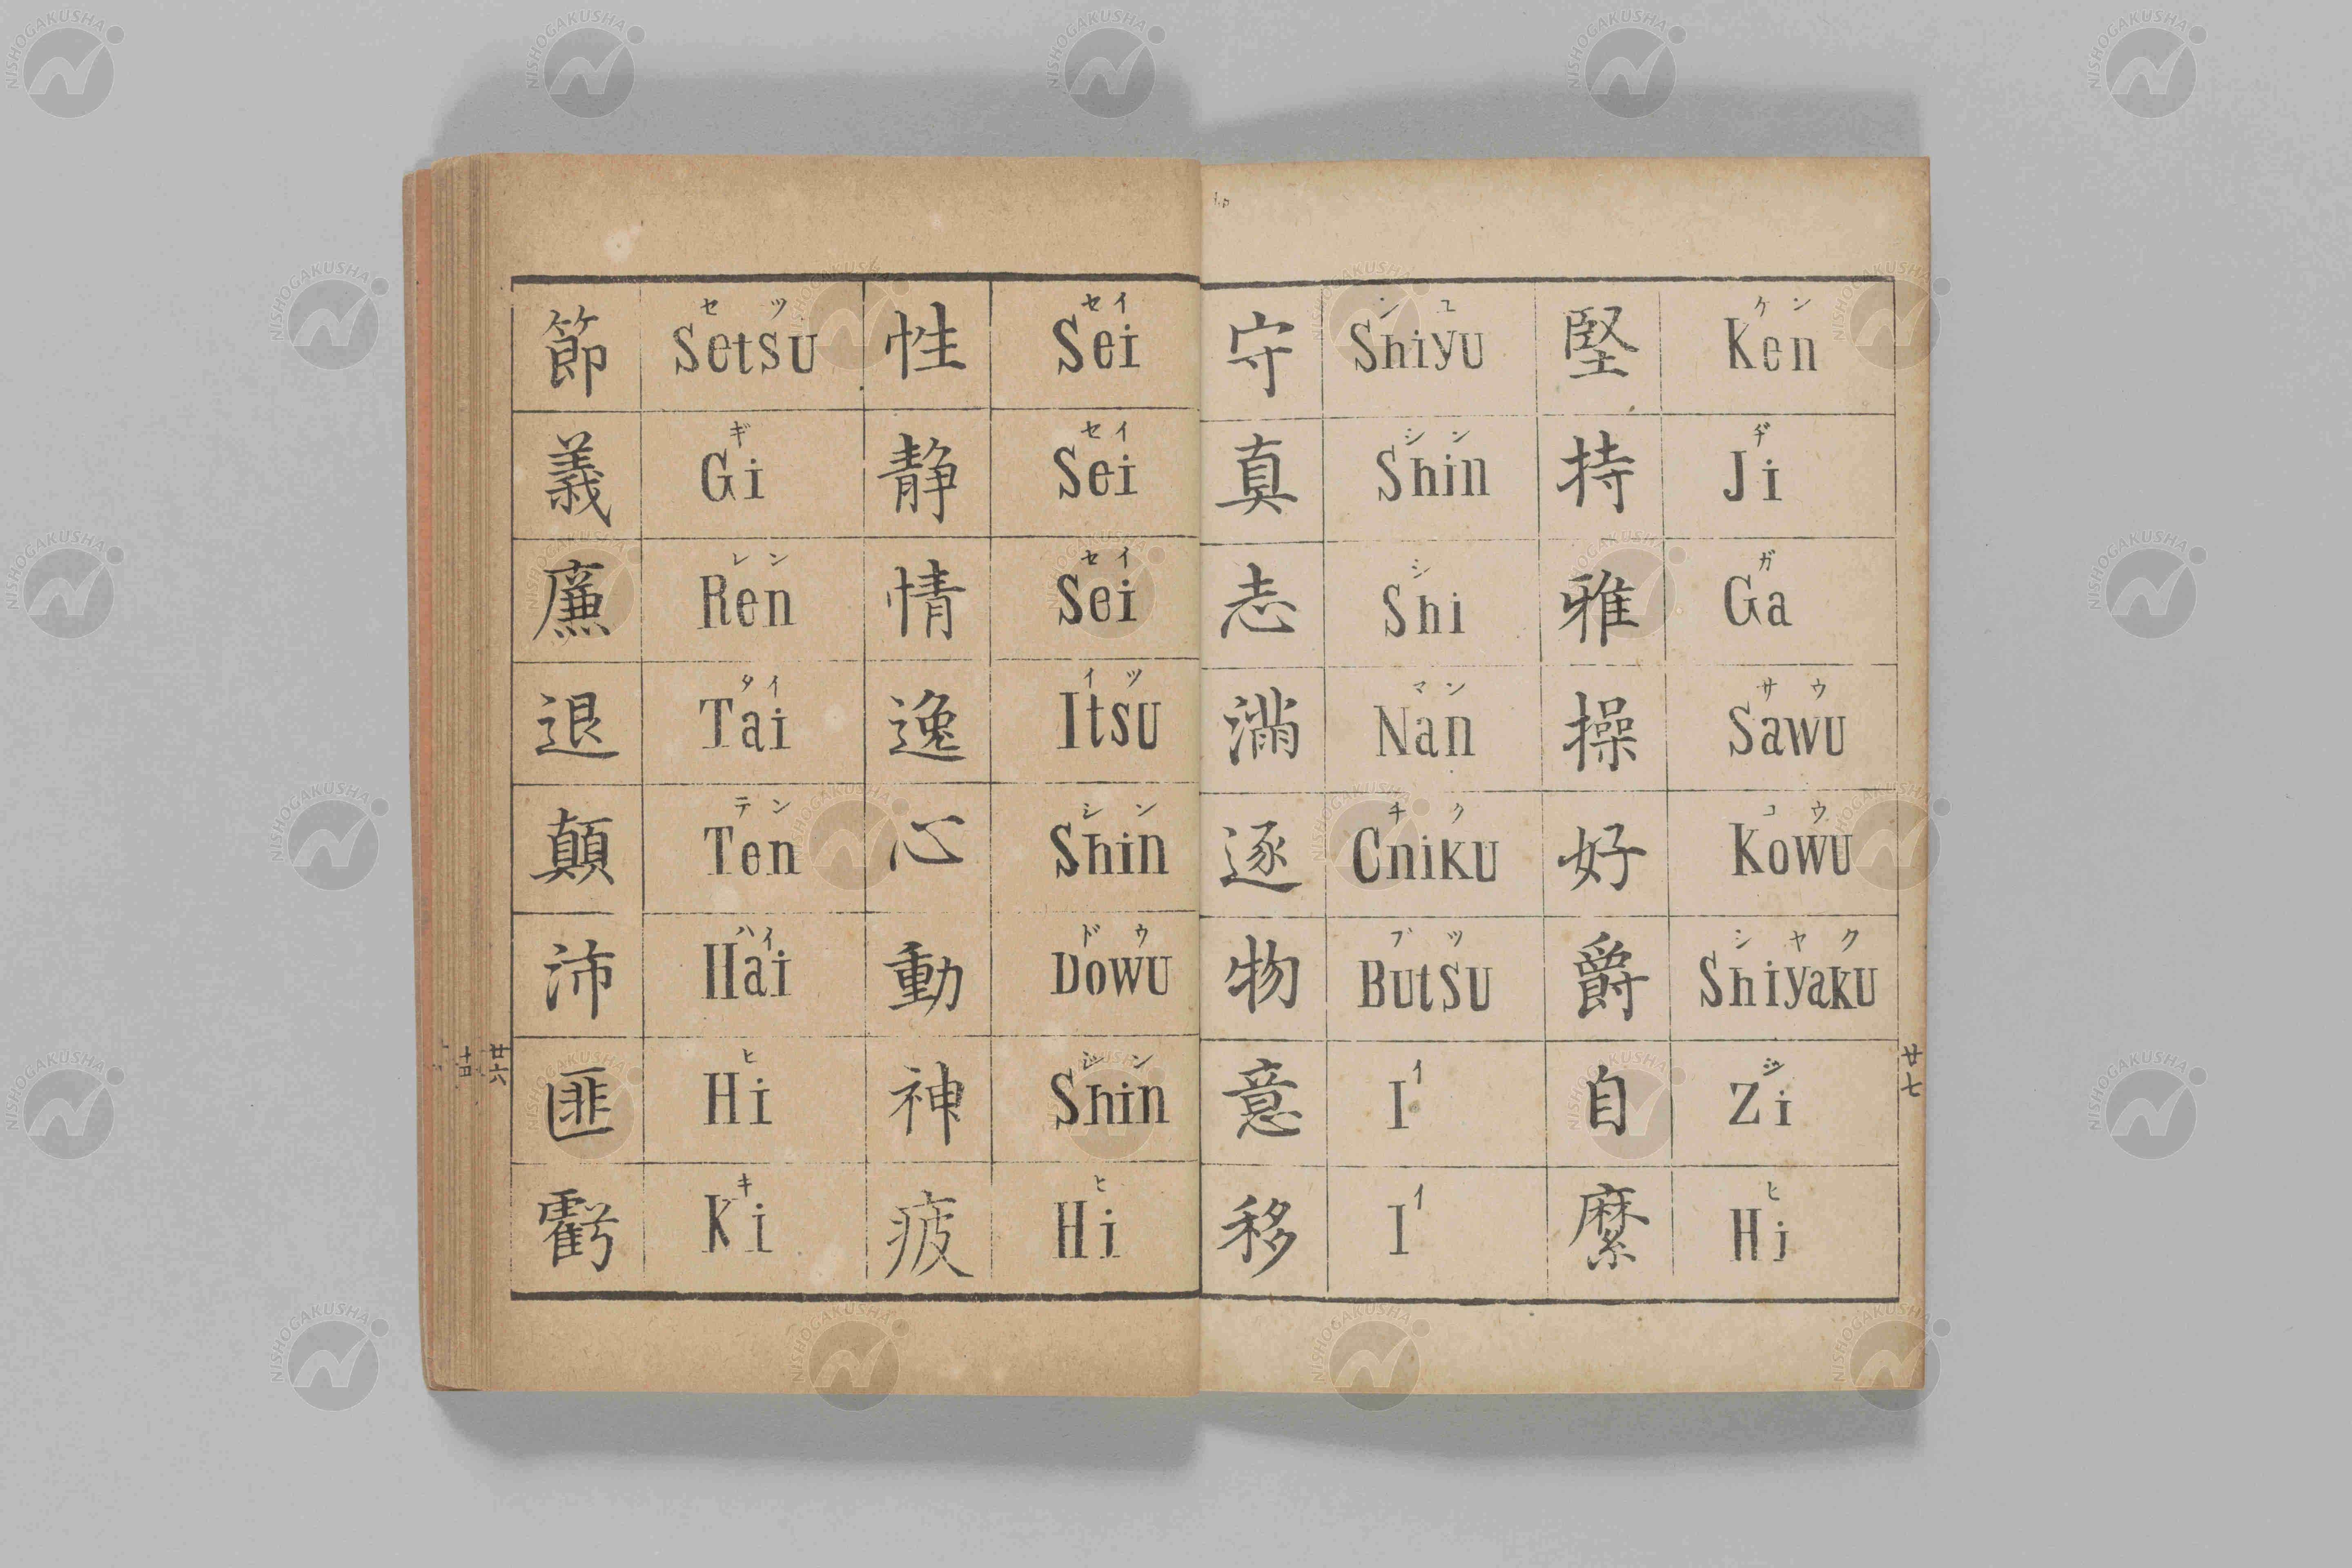 節 セツ Setsu
義 ギ Gi
廉 レン Ren
退 タイ Tai
顛 テン Ten
沛 ハイ Hai
匪 ヒ Hi
虧 キ Ki
性 セイ Sei
静 セイ Sei
情 セイ Sei
逸 イツ Itsu
心 シン Shin
動 ドウ Dowu
神 シン Shin
疲 ヒ Hi
守 シユ Shiyu
真 シン Shin
志 シ Shi
満 マン Nan
逐 チク Chiku
物 ブツ Butsu
意 イ I
移 イ I
堅 ケン Ken
持 ヂ Ji
雅 ガ Ga
操 サウ Sawu
好 コウ Kowu
爵 シヤク Shiyaku
自 ジ Zi
縻 ヒ Hi
廿六
廿七
NISHOGAKUSHA